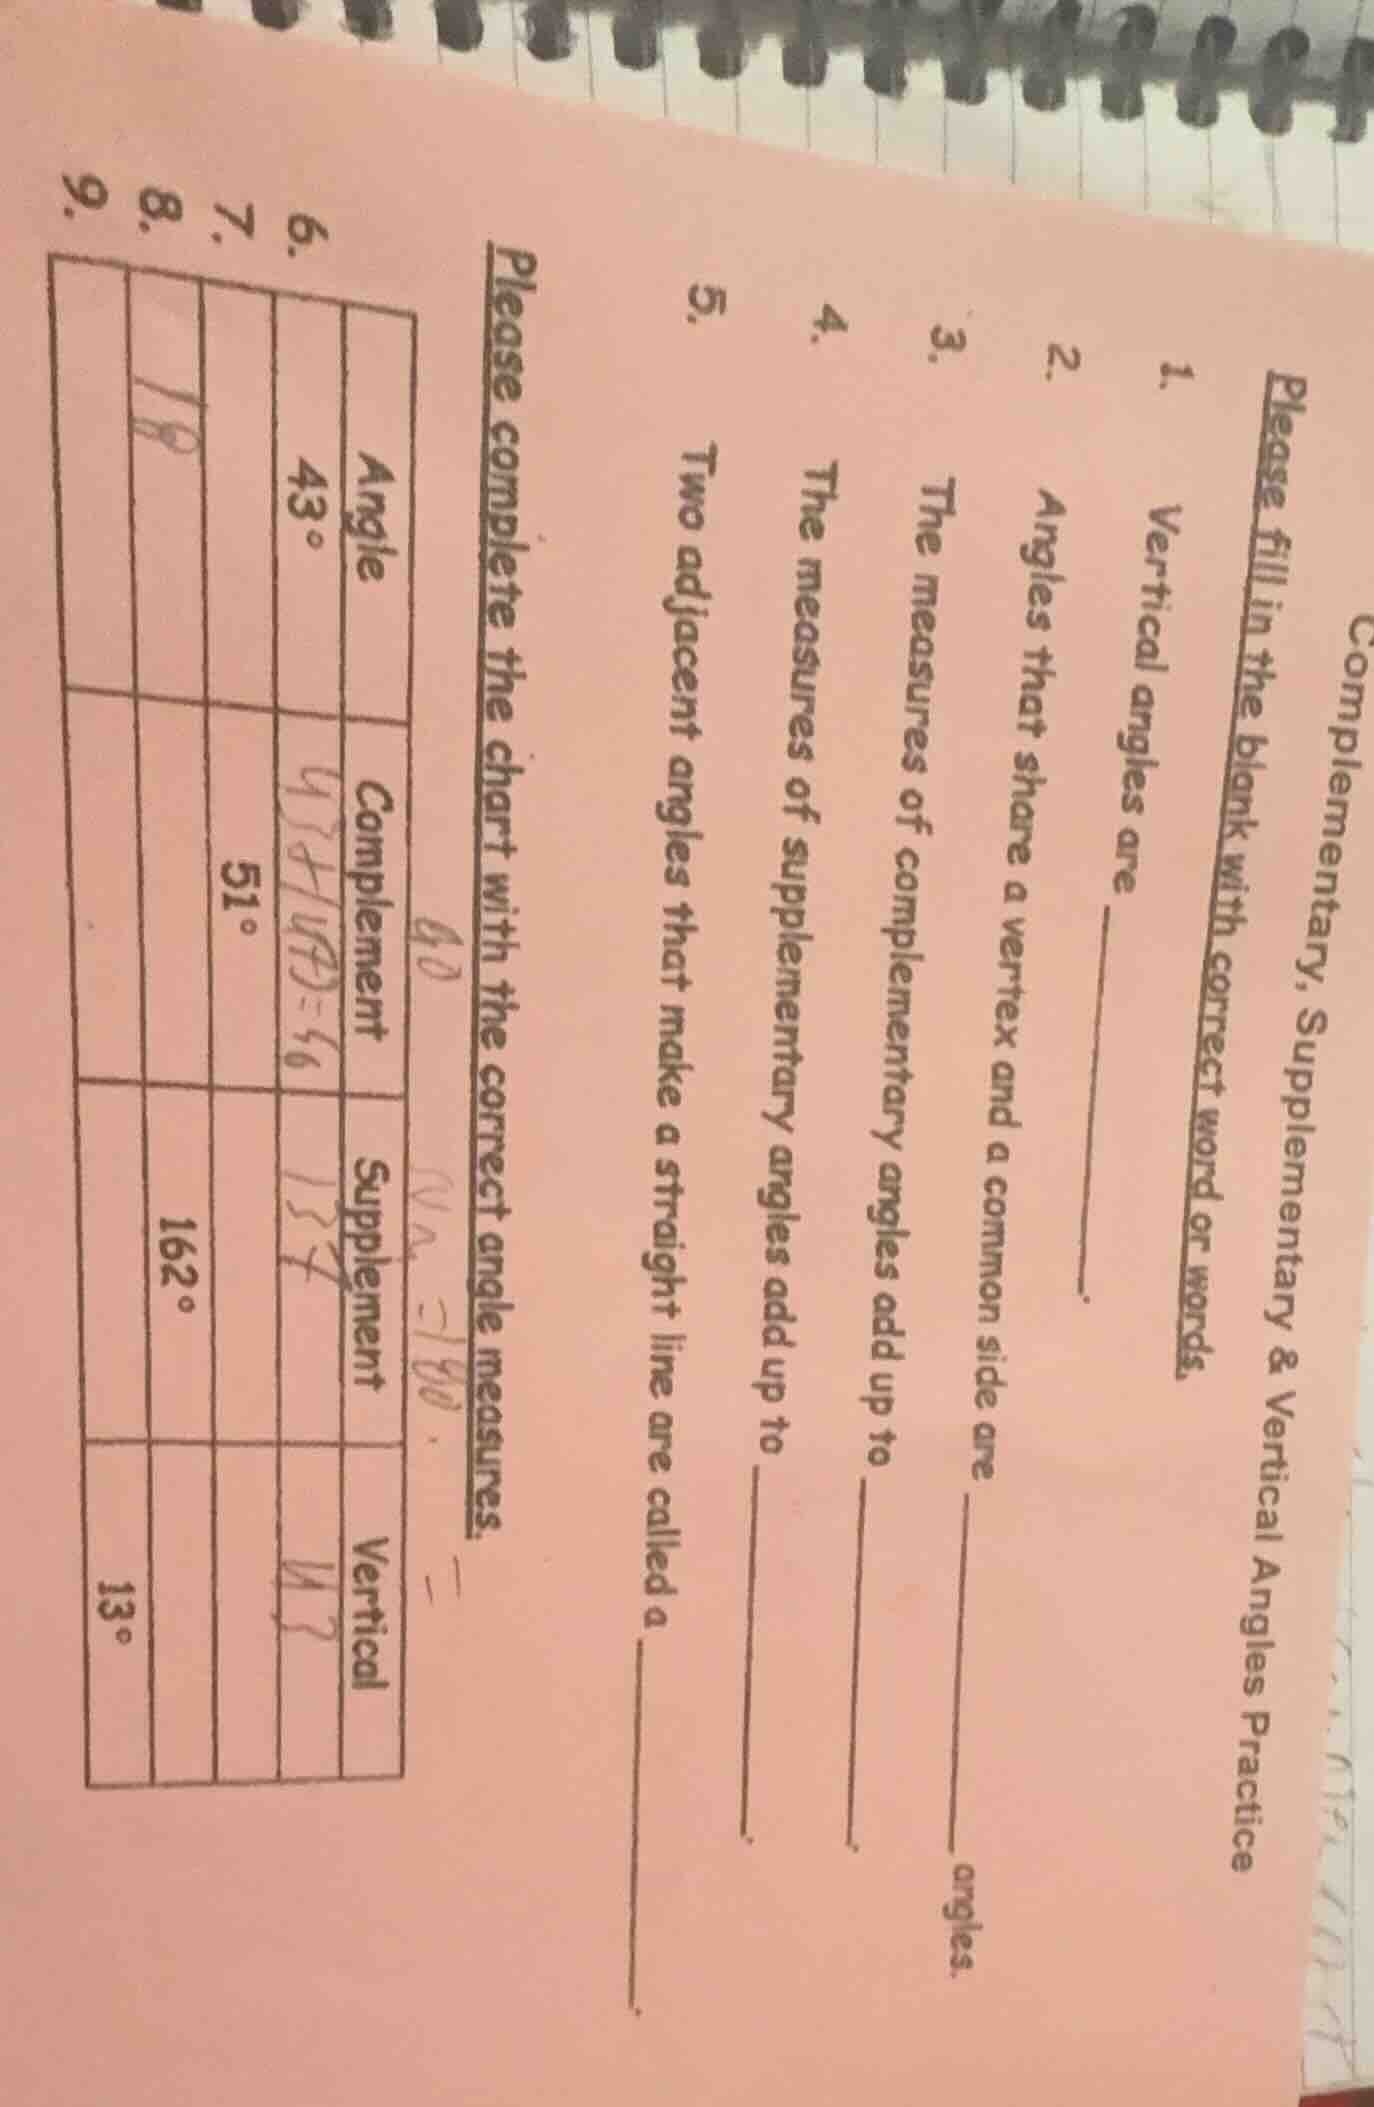 Complementary, Supplementary & Vertical Angles Practice
Please fill in the blank with correct word or words.
1. Vertical angles are ____________.
2. Angles that share a vertex and a common side are ____________ angles.
3. The measures of complementary angles add up to ____________.
4. The measures of supplementary angles add up to ____________.
5. Two adjacent angles that make a straight line are called a ____________.
Please complete the chart with the correct angle measures.
90 = 180.
Angle Complement Supplement Vertical
6. 43° 137 43
7. 51°
8. 18 162°
9. 13°